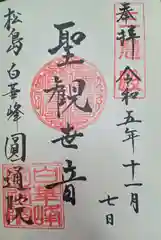 奉拝 令和五年十一月
七日
聖觀世音
松島 白華峰 圓通院